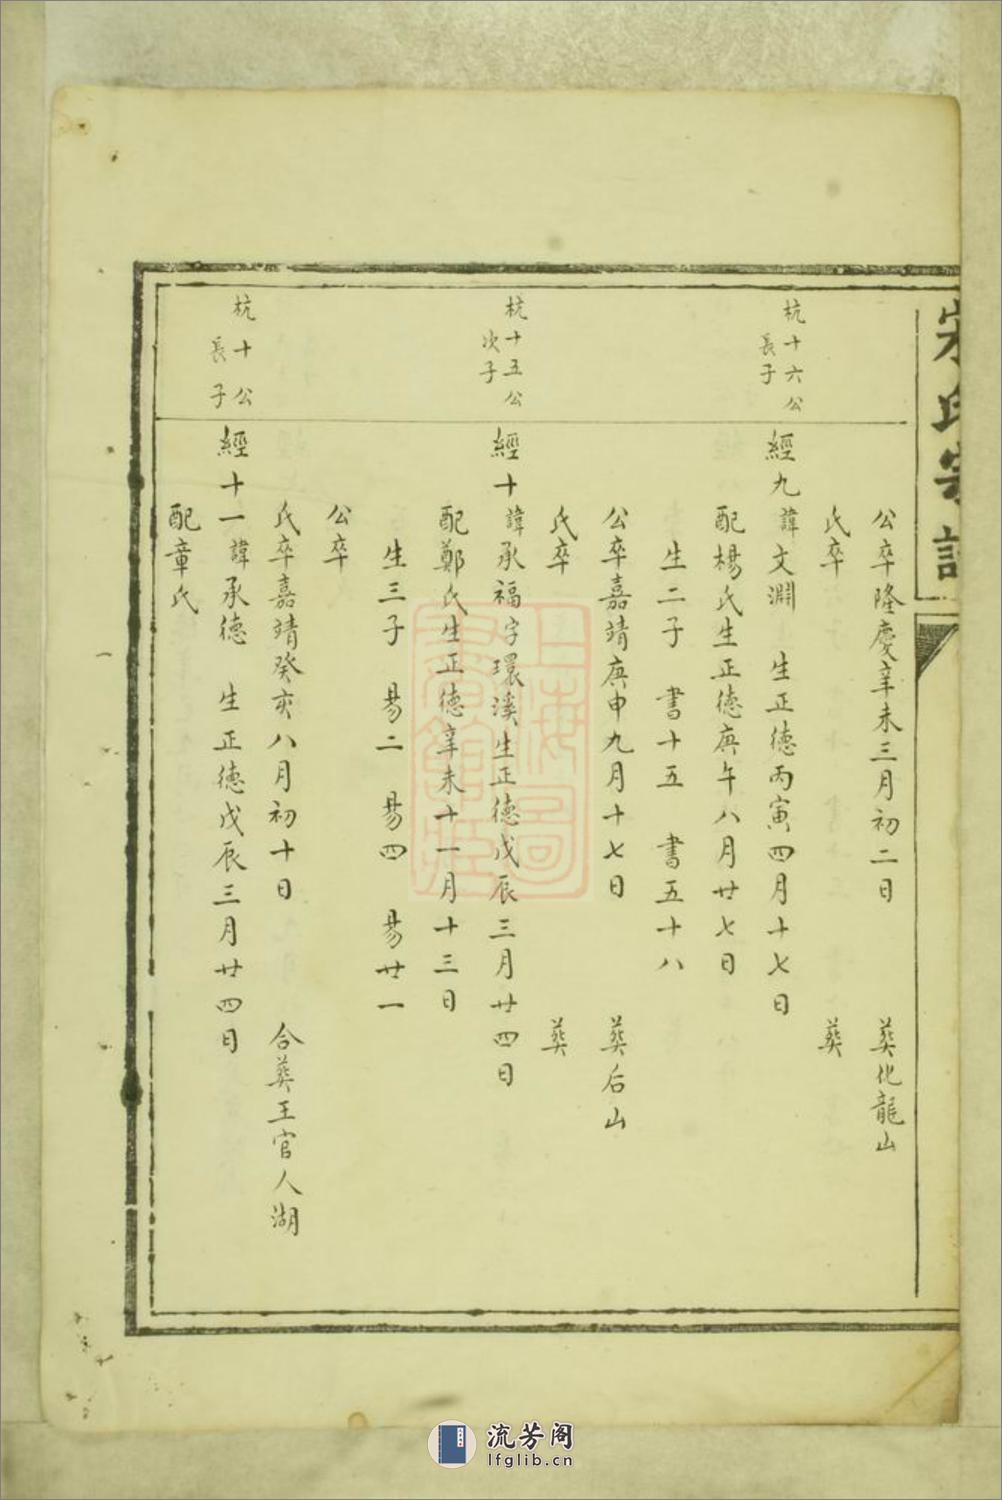 宋氏宗譜
公卒隆慶辛未三月初二日 葬化龍山
氏卒 葬
杭十六公
長子
經九諱文淵 生正德丙寅四月十七日
配楊氏生正德庚午八月廿七日
生二子 書十五 書五十八
公卒嘉靖庚申九月十七日 葬后山
氏卒 葬
杭十五公
次子
經十諱承福字環溪生正德戊辰三月廿四日
配鄭氏生正德辛未十一月十三日
生三子 易二 易四 易廿一
公卒
氏卒嘉靖癸亥八月初十日 合葬王官人湖
杭十公
長子
經十一諱承德 生正德戊辰三月廿四日
配章氏
上海圖
書館藏
流芳阁
lfglib.cn